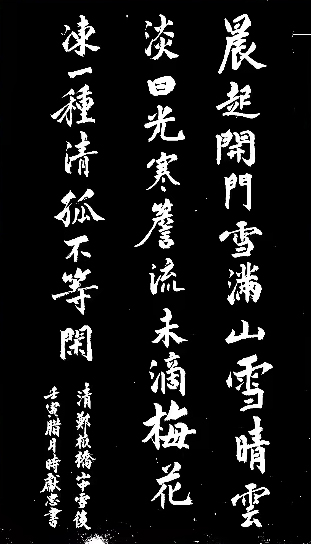 晨起開門雪滿山雪晴雲
淡日光寒簷流未滴梅花
凍一種清孤不等閑
清鄭板橋山中雪後
壬寅腊月時獻忠書